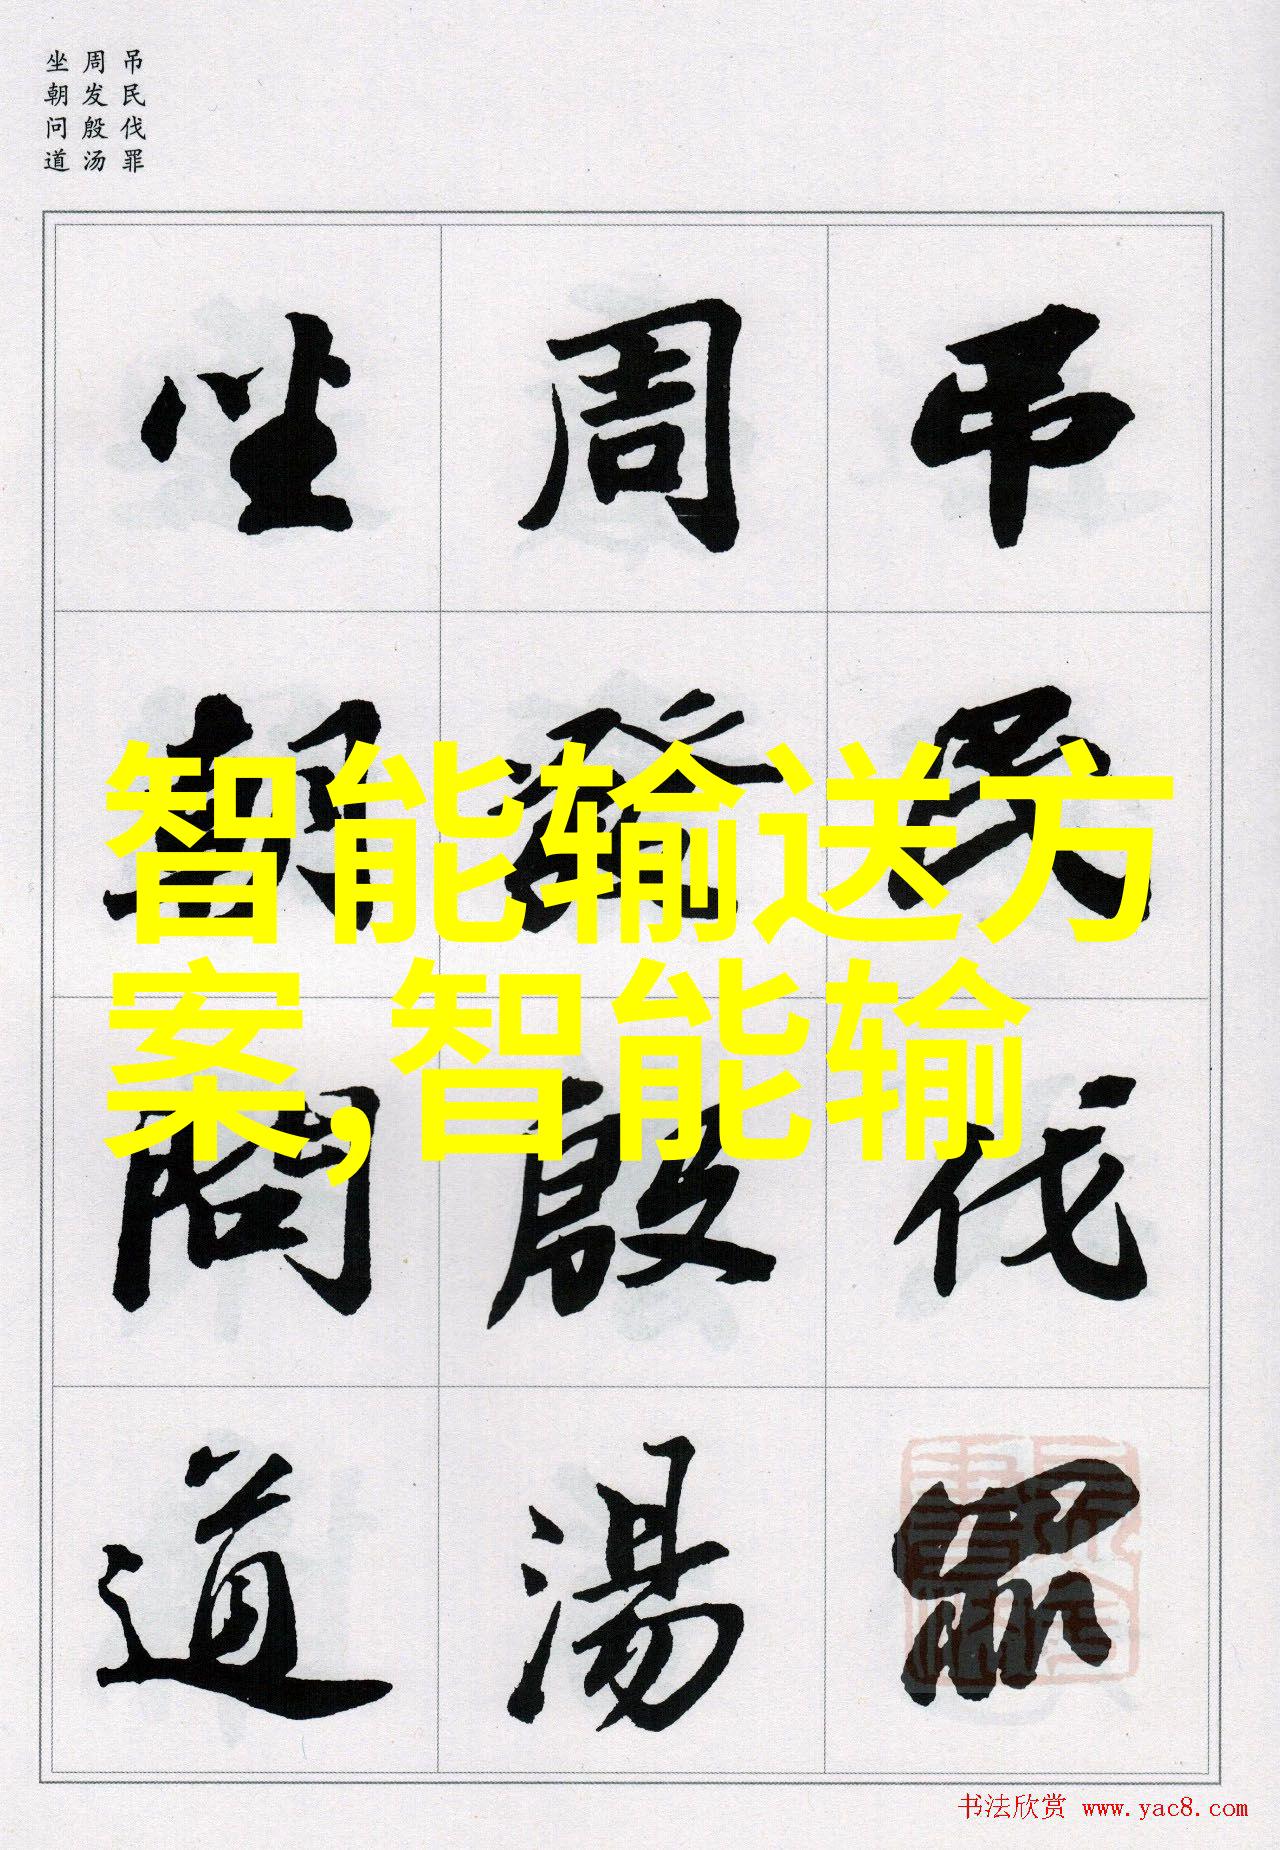 吊民伐罪
周发殷汤
坐朝问道
吊民伐罪
周發殷湯
坐朝問道
智能输送方
案,智能输
书法欣赏 www.yac8.com